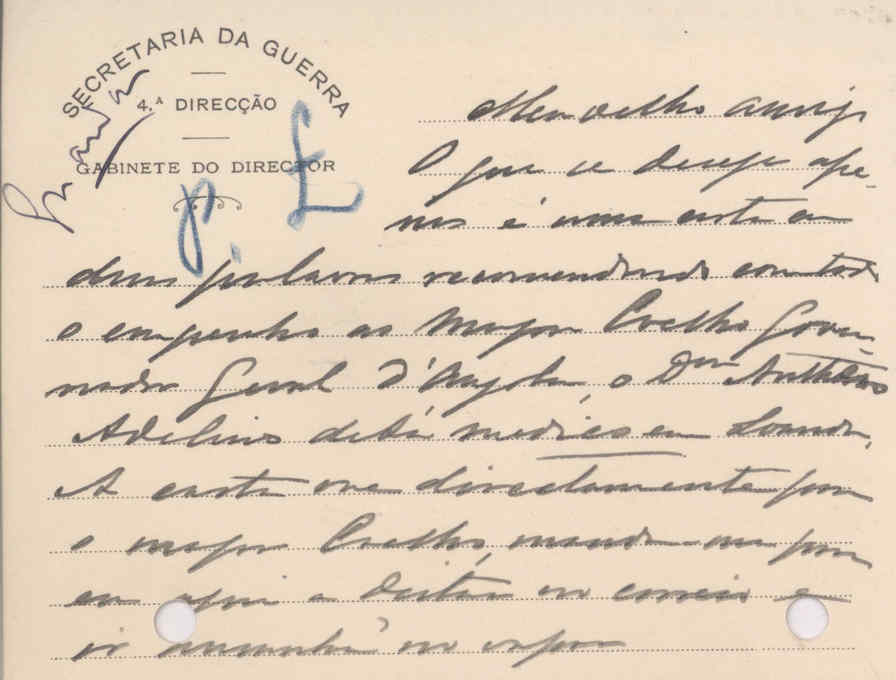 SECRETARIA DA GUERRA
4.ª DIRECÇÃO
GABINETE DO DIRECTOR
Meu velho amigo
O que se deseja ape-
nas é uma carta em
duas palavras recomendando com todo
o empenho ao Major Coelho Gover
nador Geral d'Angola, o Dou
Adelino medico em Loanda.
A carta directamente para
o major Coelho, manda-ma para
eu aqui a deitar no correio e
ir amanhã no vapor